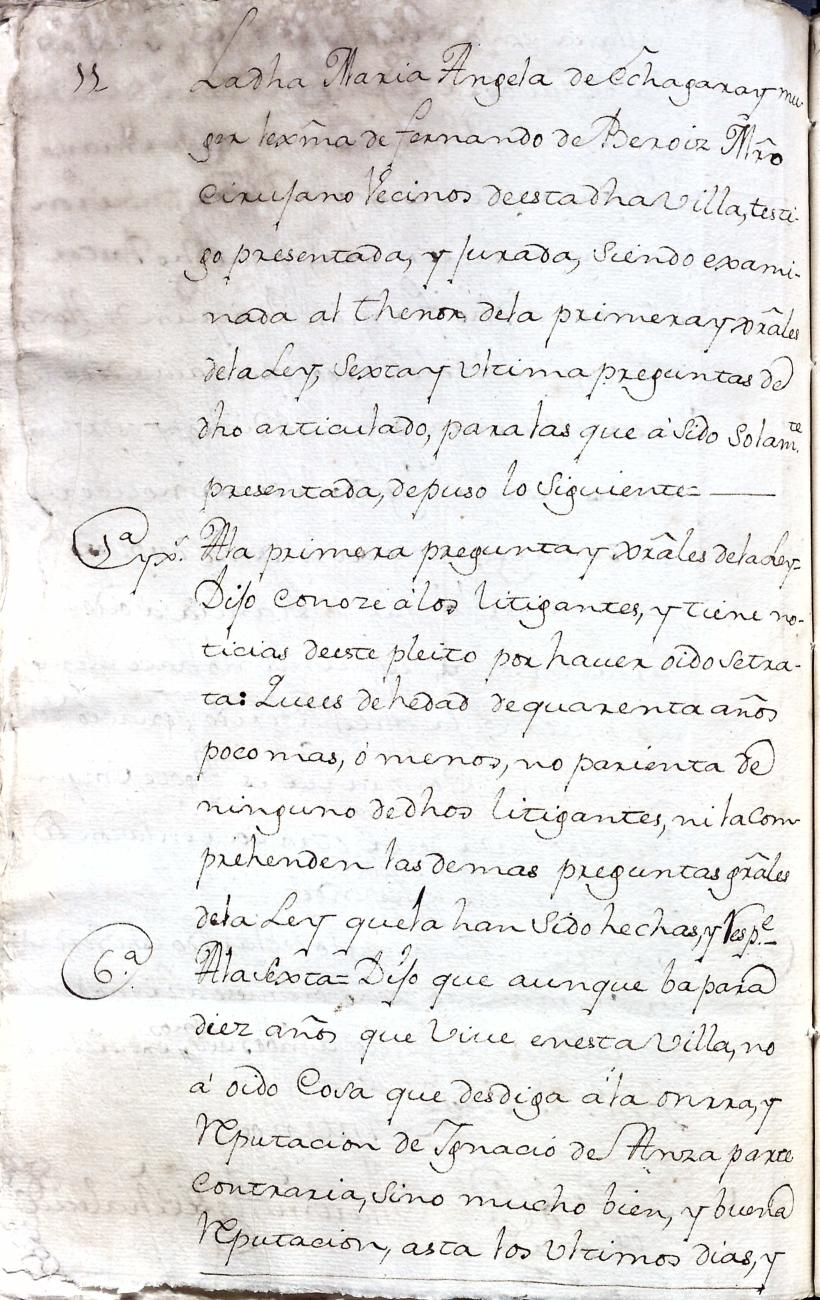 11
La dha Maria Angela de Echagaray mu-
ger lexma de fernando de Beroiz Mro
Cirujano Vecinos de esta dha Villa, testi-
go presentada, y Jurada, Siendo exami-
nada al thenor dela primera y grâles
dela Ley, Sexta y Ultima preguntas de
dho articulado, para las que á Sido Solamte
presentada, depuso lo Siguiente=
1a y gs. Ala primera pregunta y grâles dela Ley=
Dijo Conoze álos litigantes, y tiene no-
ticias de este pleito por haver oido Setra-
ta: Que es de hedad de quarenta años
poco mas, ó menos, no parienta de
ninguno de dhos litigantes, ni la Com-
prehenden las demas preguntas grâles
dela Ley que la han Sido hechas, y Respe
6.a Ala Sexta= Dijo que aunque ba para
diez años que Vive en esta Villa, no
á oido Cosa que desdiga á la onrra, y
Reputacion de Ignacio de Anza parte
Contraria, Sino mucho bien, y buena
Reputacion, asta los Ultimos dias, y